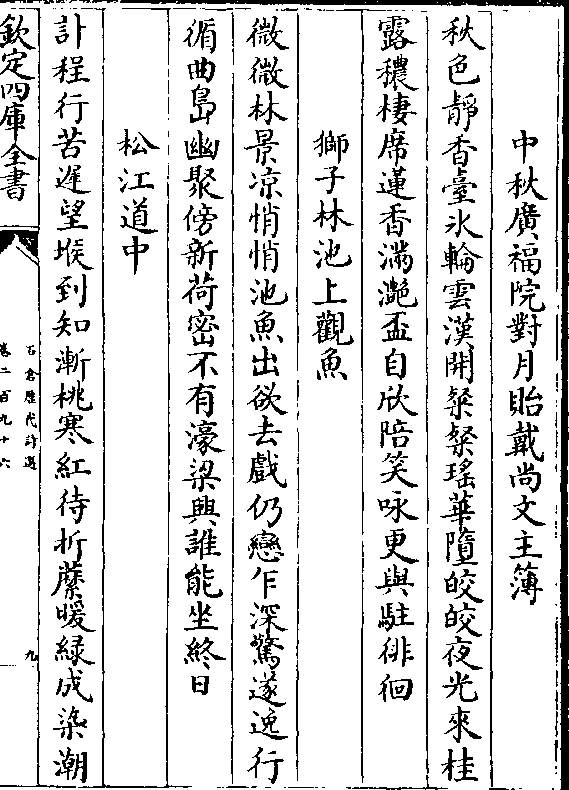 中秋廣福院對月貽戴尚文主簿
秋色靜香臺氷輪雲漢開粲粲瑤華墮皎皎夜光來桂
露穠棲席蓮香滿灔盃自欣陪笑咏更與駐徘徊
獅子林池上觀魚
微微林景凉悄悄池魚出欲去戲仍戀乍深驚遂逸行
循曲島幽聚傍新荷密不有濠梁興誰能坐終日
松江道中
計程行苦遲望堠到知漸桃寒紅待折蘪暖緑成染潮
欽定四庫全書
石倉歷代詩選
卷二百九十六
九